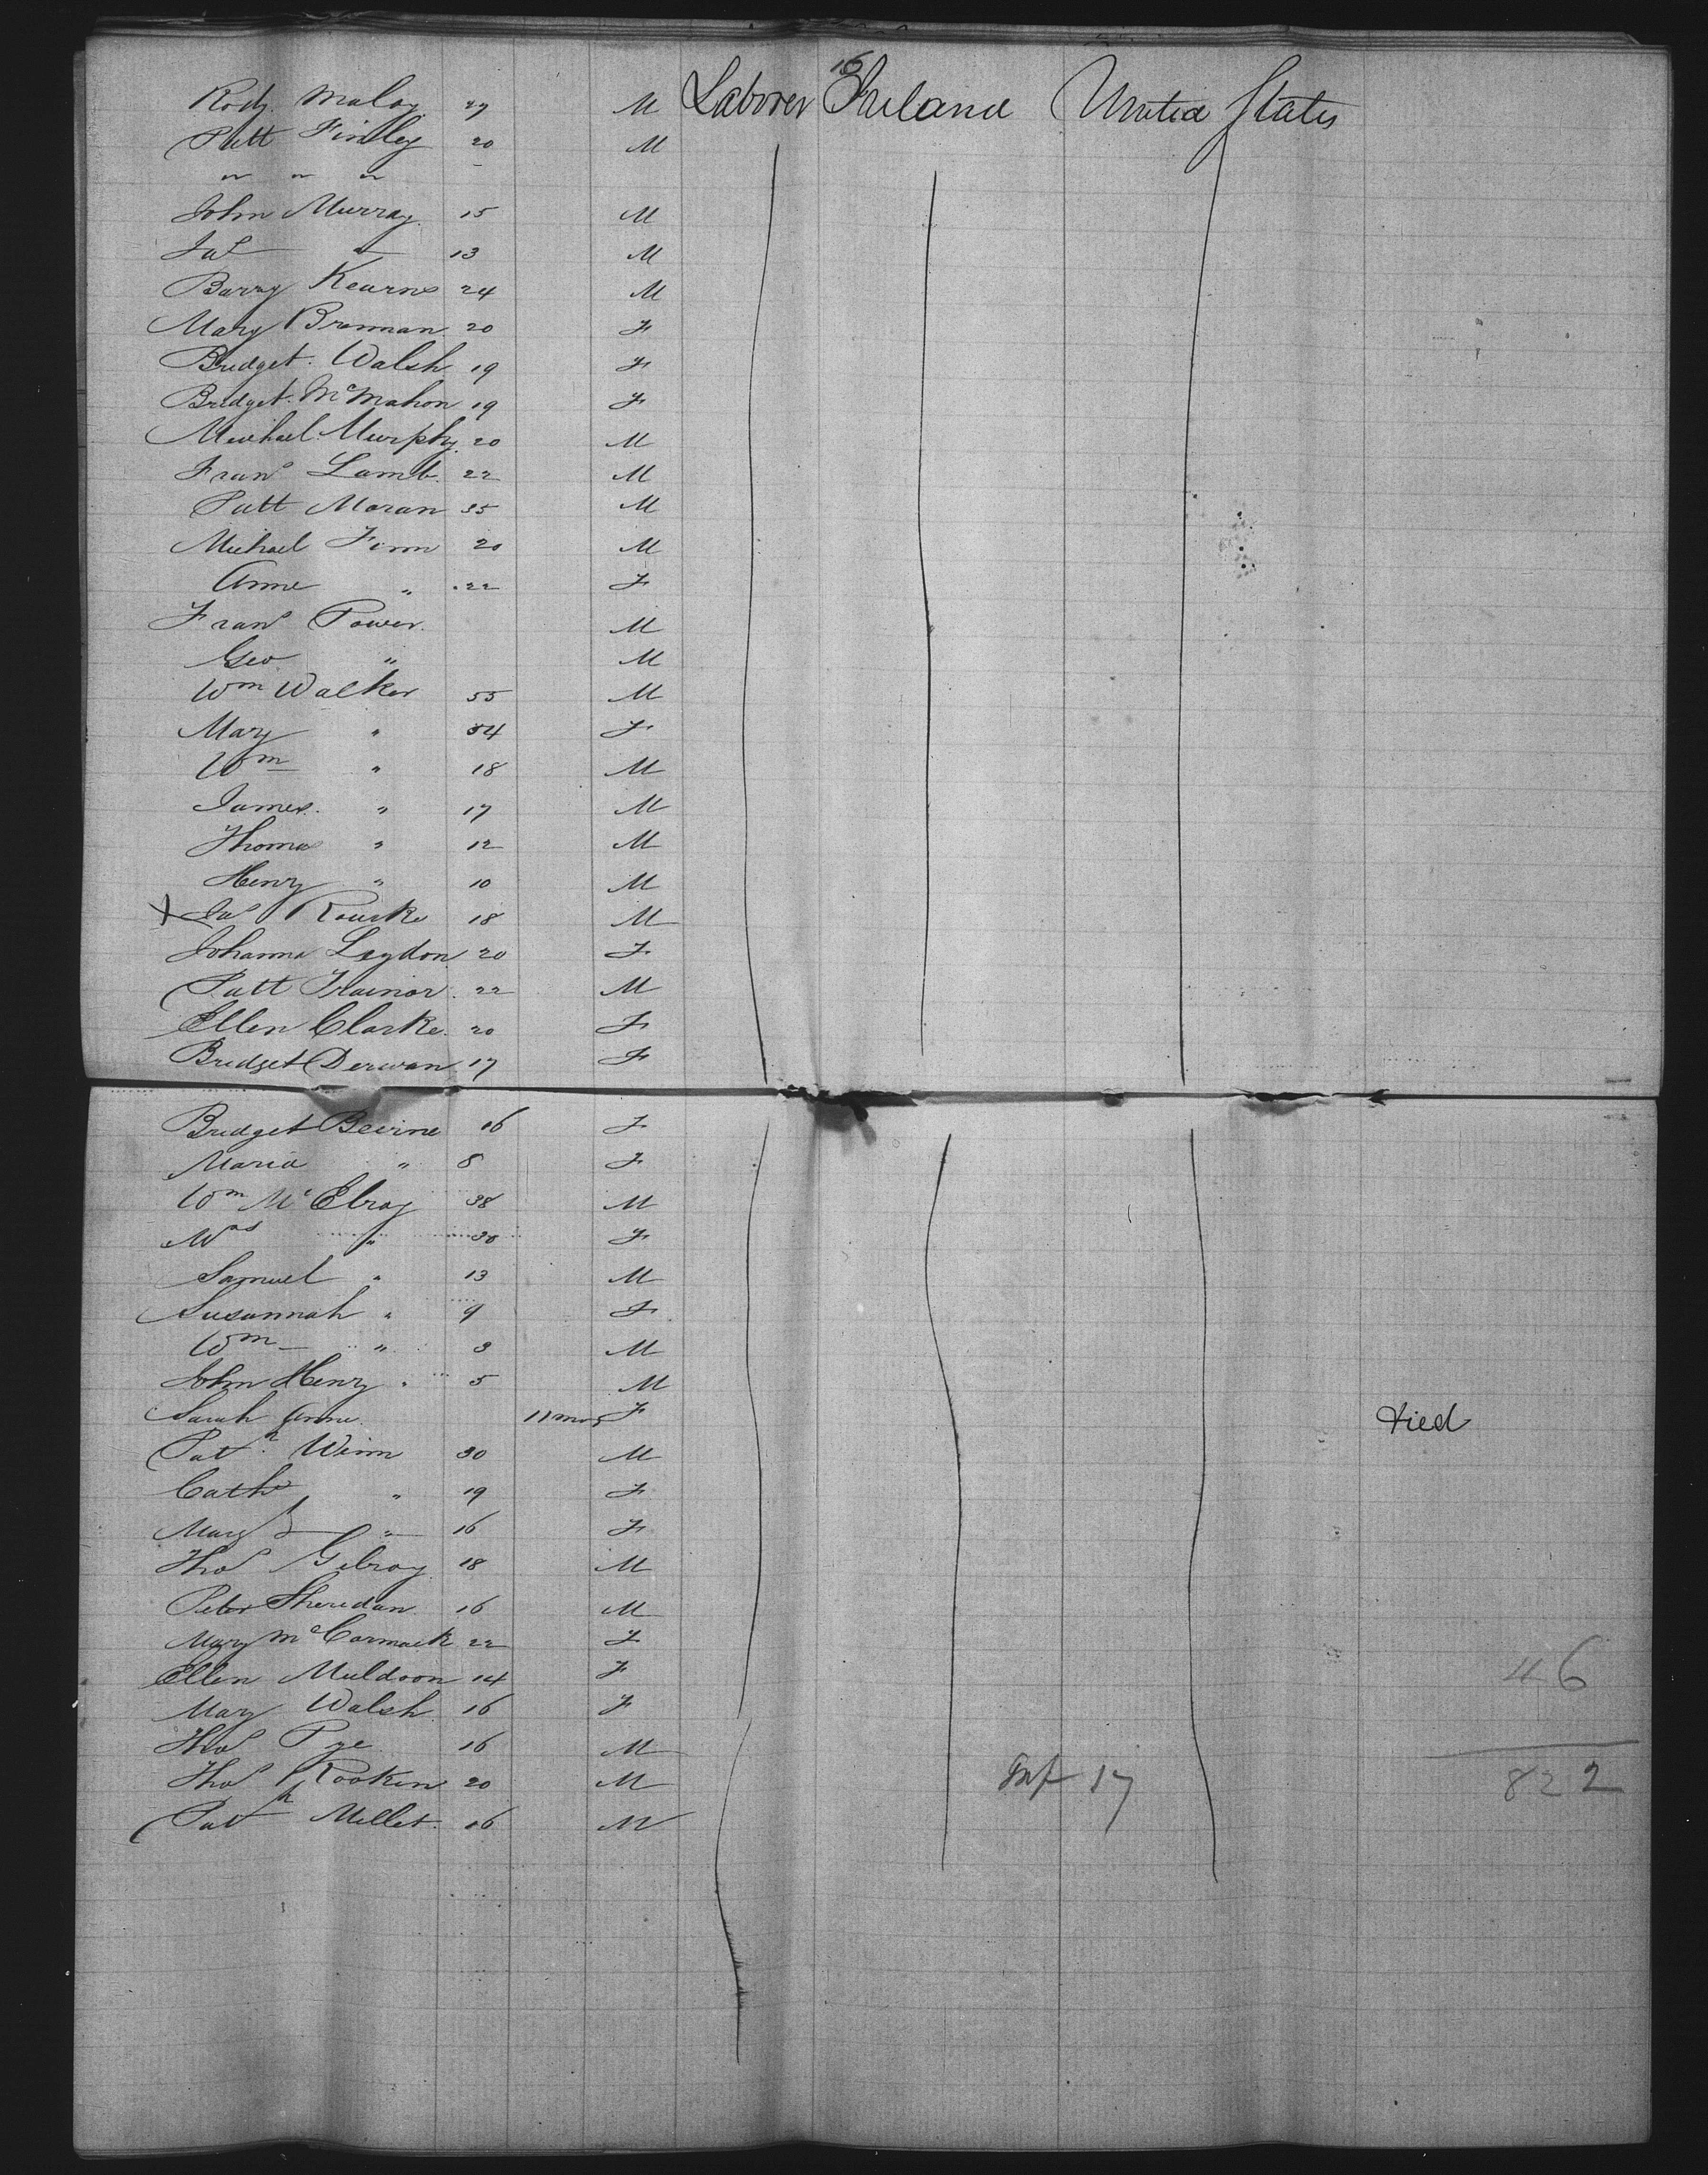 16
Rody Maloy 27 M Laborer Ireland United States
Patt Finley 20 M
" " " -
John Murray 15 M
Jas " 13 M
Barry Kearns 24 M
Mary Brennan 20 F
Bridget Walsh 19 F
Bridget McMahon 19 F
Michael Murphy 20 M
Frans Lamb 22 M
Patt Moran 35 M
Michael Finn 20 M
Anne " 22 F
Frans Power M
Geo " M
Wm Walker 55 M
Mary " 54 F
Wm " 18 M
James " 17 M
Thomas " 12 M
Henry " 10 M
X Jas Rourke 18 M
Johanna Leydon 20 F
Patt Trainor 22 M
Ellen Clarke 20 F
Bridget Derwan 17 F
Bridget Beirne 16 F
Maria " 8 F
Wm McElroy 38 M
Mrs " 30 F
Samuel " 13 M
Susannah " 9 F
Wm " 3 M
John Henry " 5 M
Sarah Anne 11 mos F Died
Patk Winn 30 M
Cath " 19 F
Margt " 16 F
Thos Gilroy 18 M
Peter Sheridan 16 M
Mary McCormack 22 F
Ellen Muldoon 14 F 46
Mary Walsh 16 F
Thos Pye 16 M
Thos Rooken 20 M Inf 17 822
Patk Mellet 16 M